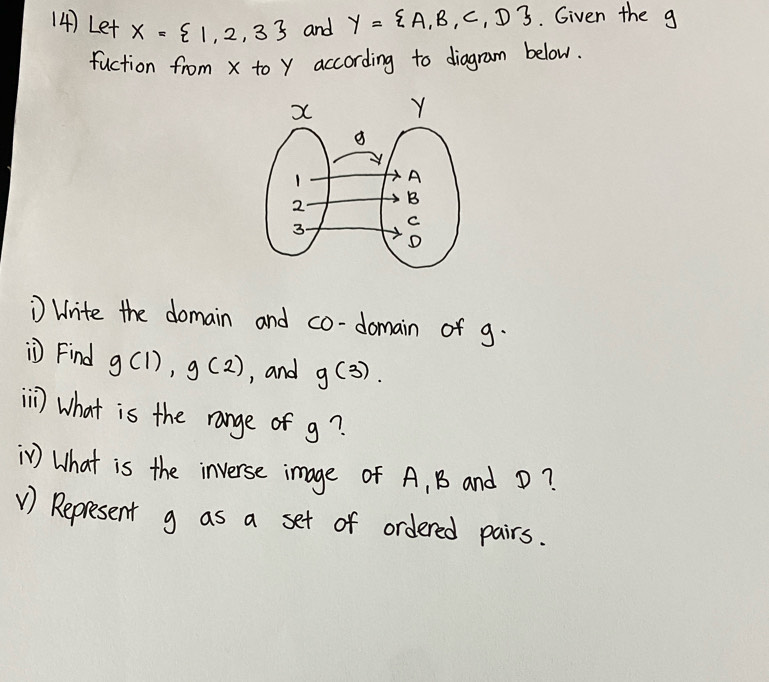 14) Let X = {1, 2, 3} and Y = {A, B, C, D}. Given the g
fuction from X to Y according to diagram below.
x Y
g
1 A
2 B
C
3 D
i) Write the domain and co-domain of g.
ii) Find g(1), g(2), and g(3).
iii) What is the range of g?
iv) What is the inverse image of A, B and D?
v) Represent g as a set of ordered pairs.